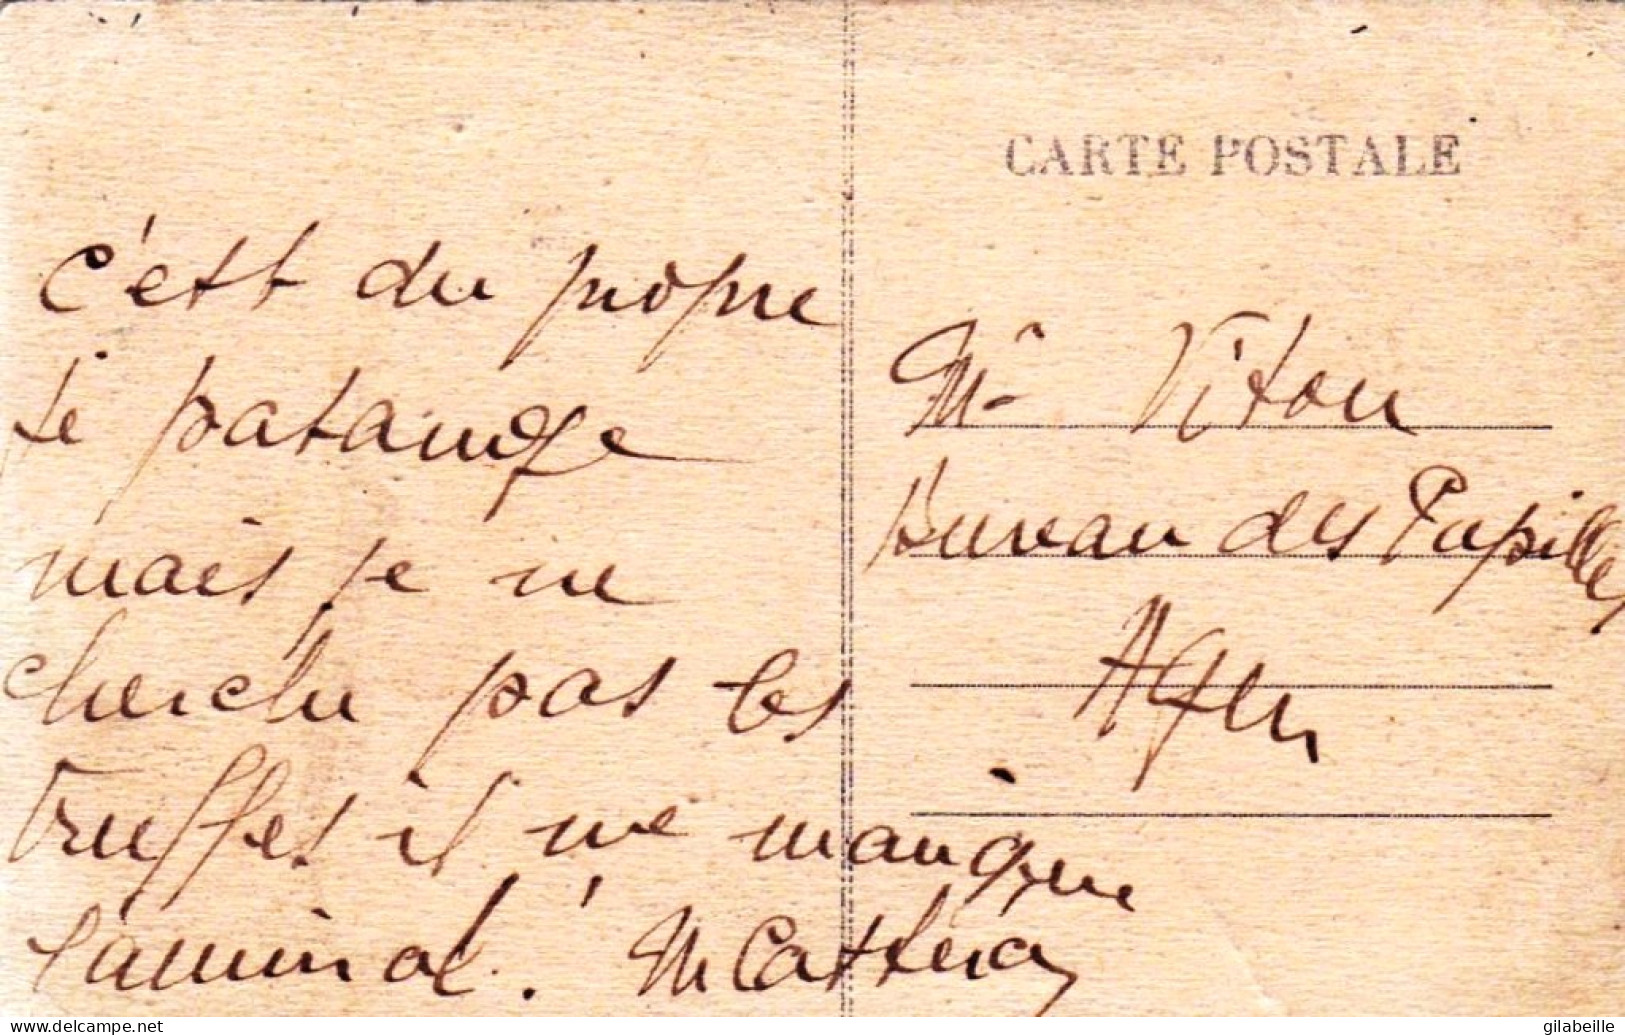 c'est du propre
je patauge
mais je ne
cherche pas les
truffes il me manque
l'animal !
CARTE POSTALE
Mr Viton
Bureau des Pupilles
Agen
www.delcampe.net
gilabeille